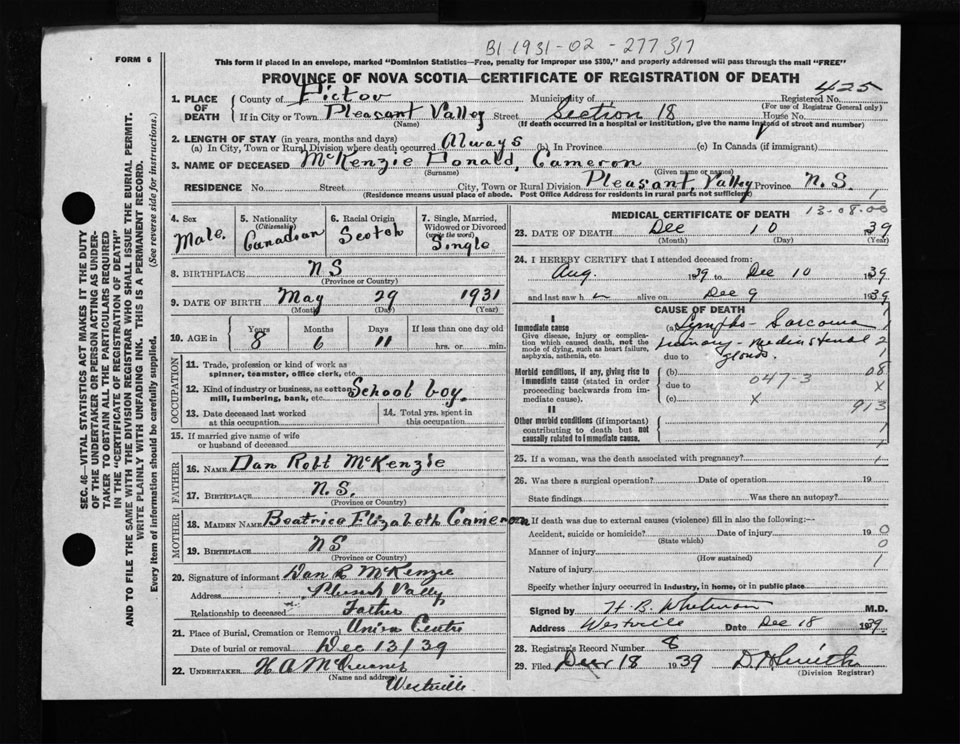 B1 1931-02-277317
FORM 6
This form if placed in an envelope, marked "Dominion Statistics—Free, penalty for improper use $300," and properly addressed will pass through the mail "FREE"
PROVINCE OF NOVA SCOTIA—CERTIFICATE OF REGISTRATION OF DEATH
425
1. PLACE OF DEATH County of Pictou Municipality of Registered No.
(For use of Registrar General only)
If in City or Town Pleasant Valley Street Section 18 House No.
(Name) (If death occurred in a hospital or institution, give the name instead of street and number)
2. LENGTH OF STAY (in years, months and days)
(a) In City, Town or Rural Division where death occurred Always (b) In Province (c) In Canada (if immigrant)
3. NAME OF DECEASED McKenzie Donald, Cameron
(Surname) (Given name or names)
RESIDENCE No. Street City, Town or Rural Division Pleasant, Valley Province N.S. 1
(Residence means usual place of abode. Post Office Address for residents in rural parts not sufficient)
4. Sex Male.
5. Nationality (Citizenship) Canadian
6. Racial Origin Scotch
7. Single, Married, Widowed or Divorced (write the word) Single
8. BIRTHPLACE N S
(Province or Country)
9. DATE OF BIRTH May 29 1931
(Month) (Day) (Year)
10. AGE in Years Months Days If less than one day old
8 6 11 hrs. or min.
OCCUPATION
11. Trade, profession or kind of work as spinner, teamster, office clerk, etc.
12. Kind of industry or business, as cotton mill, lumbering, bank, etc. School boy.
13. Date deceased last worked at this occupation
14. Total yrs. spent in this occupation
15. If married give name of wife or husband of deceased
FATHER
16. NAME Dan Robt McKenzie
17. BIRTHPLACE N.S.
(Province or Country)
MOTHER
18. MAIDEN NAME Beatrice Elizabeth Cameron
19. BIRTHPLACE N S
(Province or Country)
20. Signature of informant Dan R McKenzie
Address Valley
Relationship to deceased Father
21. Place of Burial, Cremation or Removal Union Centre
Date of burial or removal Dec 13/39
22. UNDERTAKER H A
(Name and address)
Westville
MEDICAL CERTIFICATE OF DEATH 13-08-00
23. DATE OF DEATH Dec 10 1939
(Month) (Day) (Year)
24. I HEREBY CERTIFY that I attended deceased from:
Aug. 1939 to Dec 10 1939
and last saw h alive on Dec 9 1939
CAUSE OF DEATH
I
Immediate cause (a) Lympho-Sarcoma 1
Give disease, injury or complication which caused death, not the mode of dying, such as heart failure, asphyxia, asthenia, etc.
primary - mediastinal 2
due to glands. 1
Morbid conditions, if any, giving rise to immediate cause (stated in order proceeding backwards from immediate cause).
(b) 08
due to 047-3 X
(c) X 913
II
Other morbid conditions (if important) contributing to death but not causally related to immediate cause. 1
25. If a woman, was the death associated with pregnancy? 1
26. Was there a surgical operation? Date of operation 19
State findings Was there an autopsy?
27. If death was due to external causes (violence) fill in also the following:—
Accident, suicide or homicide? Date of injury 19 0
(State which) 0
Manner of injury 1
(How sustained)
Nature of injury
Specify whether injury occurred in industry, in home, or in public place
Signed by H. B. Whitman M.D.
Address Westville Date Dec 18 1939.
28. Registrar's Record Number 8
29. Filed Dec 18 1939 Smith
(Division Registrar)
SEC. 46—VITAL STATISTICS ACT MAKES IT THE DUTY
OF THE UNDERTAKER OR PERSON ACTING AS UNDER-
TAKER TO OBTAIN ALL THE PARTICULARS REQUIRED
IN THE "CERTIFICATE OF REGISTRATION OF DEATH"
AND TO FILE THE SAME WITH THE DIVISION REGISTRAR WHO SHALL ISSUE THE BURIAL PERMIT.
WRITE PLAINLY WITH UNFADING INK. THIS IS A PERMANENT RECORD.
Every item of information should be carefully supplied. (See reverse side for instructions.)